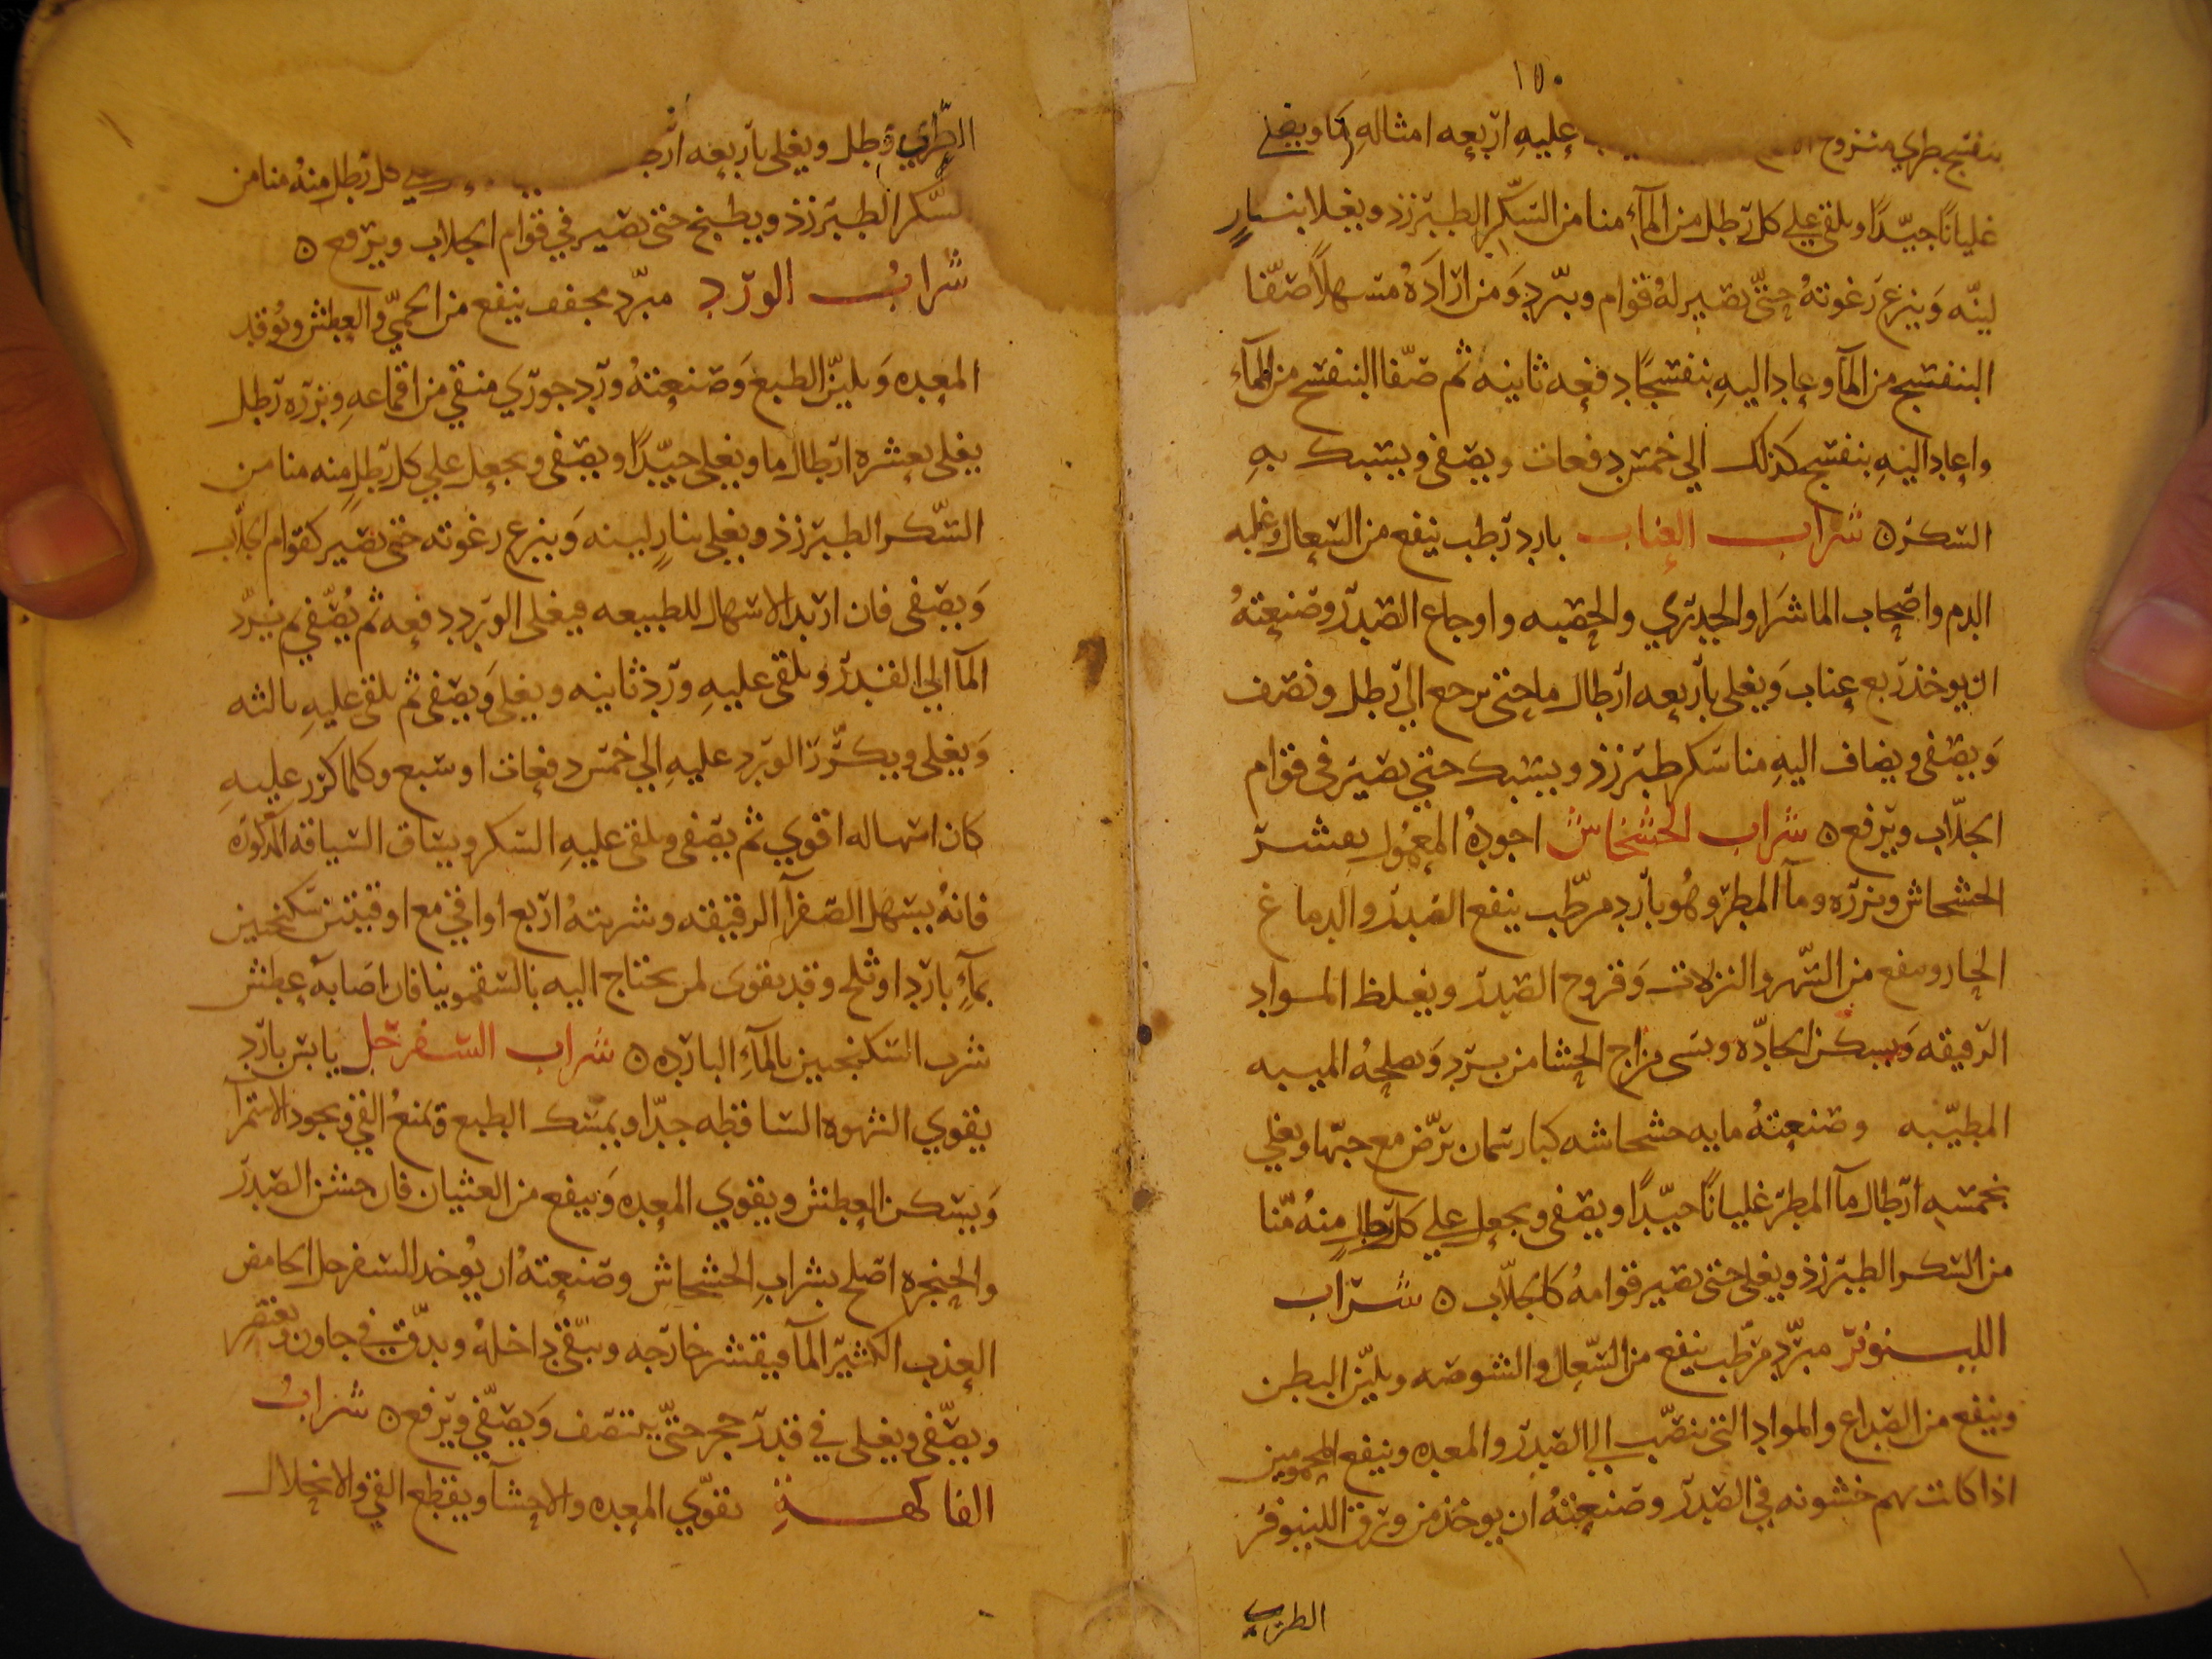 ١٥٠
بنفسج طري منزوع عليهِ اربعه امثالهِ مآ ويغلى
غلياناً جيّداً ويلقى علي كل رطل من المآءِ منا من السّكّر الطبرزذ ويغلا بنارٍ
ليّنه وَينزع رَغوتهُ حتّى يصير لهُ قوام ويبّرد وَمن ارَادَهُ مسهلاً صفّا
البنفسج من المآ وعاد اليهِ بنفسجًا دفعه ثانيه ثم صفّا البنفسج من المآءِ
واعاد اليهِ بنفسج كذلك الي خمس دفعات ويصفى ويسبك بهِ
السكر ه شراب العناب بارد رطب ينفع من السعال وغلبه
الدم واصحاب الماشرَا والجدري والحصبه واوجاع الصدر وصنعتهُ
ان يوخذ ربع عناب وَيغلى باربعه ارطال ما حتى يرجع الي رطل ونصف
وَيصفى ويضاف اليهِ منا سَكر طبرزذ ويسبك حتي يصير فى قوام
الجلّاب ويرفع ه شراب الخشخاش اجودهُ المعمُول بعشر
الخشخاش وبزره ومآ المطر وهُو بارد مرطّب ينفع الصدر والدماغ
الحار وينفع من السّهر والنزلات وَقروح الصدر ويغلظ المواد
الرقيقه وَيسكن الحادّه ويسى مزاج الحشا من برد وَيصلحهُ الميبه
المطيّبه وصنعتهُ مايه خشخاشه كبار سمان ترّض مع حبّها ويغلي
بخمسه ارطال مآ المطر غلياناً جيّداً ويصفى ويجعل علي كل رطلٍ منهُ منّا
من السكر الطبرزذ ويغلى حتى يصير قوامهُ كالجلّاب ه شراب
اللينوفر مبرّد مرطّب ينفع من السّعال والشوصه ويليّن البطن
وينفع من الصداع والمواد التى تنصّب الي الصدر والمعده وينفع المحمومين
اذا كانت بهم خشونه في الصدر وصنعتهُ ان يوخذ من ورق اللينوفر
الطري
الطّري رطل ويغلى باربعه كل رطل منهُ منا من
السّكر الطبرزذ ويطبخ حتى يصير في قوام الجلاب ويرفع ه
شرابُ الورد مبرّد مجفف ينفع من الحمّي والعطش وتُوقد
المعده وَيليّن الطبع وَصنعتهُ ورد جوري منقي من اقماعهِ وبزره رطل
يغلى بعشره ارطال ما ويغلي جيّداً ويصفى ويجعل علي كل رطلٍ منه منا من
السّكر الطبرزذ ويغلى بنارٍ لينه وَينزع رغوته حتى يصير كقوام الجلّاب
وَيصفى فان اريد الاسهال للطبيعه فيغلى الورد دفعه ثم يُصّفي ثم يبرّد
المآ الي القدر ويلقى عليهِ ورد ثانيه ويغلي وَيصفى ثم يلقى عليهِ ثالثه
وَيغلى ويكرّر الورد عليهِ الي خمس دفعات او سبع وكلما كرر عليهِ
كان اسهاله اقوي ثم يصفى ويلقى عليهِ السكر ويساق السياقه المذكوره
فانهُ يسهل الصفرآ الرقيقه وشربتهُ اربع اواقي مع اوقيتين سكنجبين
بمآءٍ بارد او ثلج وقد يقوى لمن يحتاج اليه بالسقمونيا فان اصَابهُ عطش
شرب السكنجبين بالمآءِ البارد ه شراب السفرجل يابس بارد
يقوي الشهوه الساقطه جدّا ويمسك الطبع ويمنعُ القي ويجود الاستمرا
وَيسكن العطش ويقوي المعده وَينفع من الغثيان فان خشن الصدر
والحنجره اصلح بشرابِ الخشخاش وصنعتهُ ان يُوخد السفرجل الحامض
العذب الكثير المآ فيقشر خارجه وينّقي داخلهُ ويدقّ في جاون ويعتصر
ويصّفى ويغلى في قدر حجر حتّي ينتصف وَيصّفي ويرفع ه شرابُ
الفاكهةِ يقوّي المعده والاحشآ ويقطع القي والانحلال